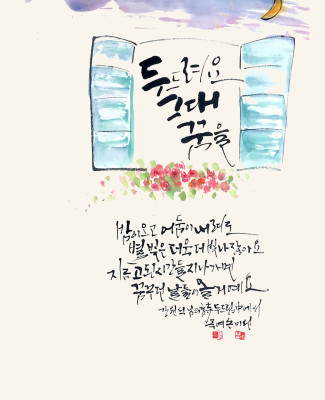 두드려요
그대
꿈을
밤이 오고 어둠이 내려도
별빛은 더욱 더 빛나잖아요
지금 고된 시간들 지나가면
꿈꾸던 날들이 올거예요